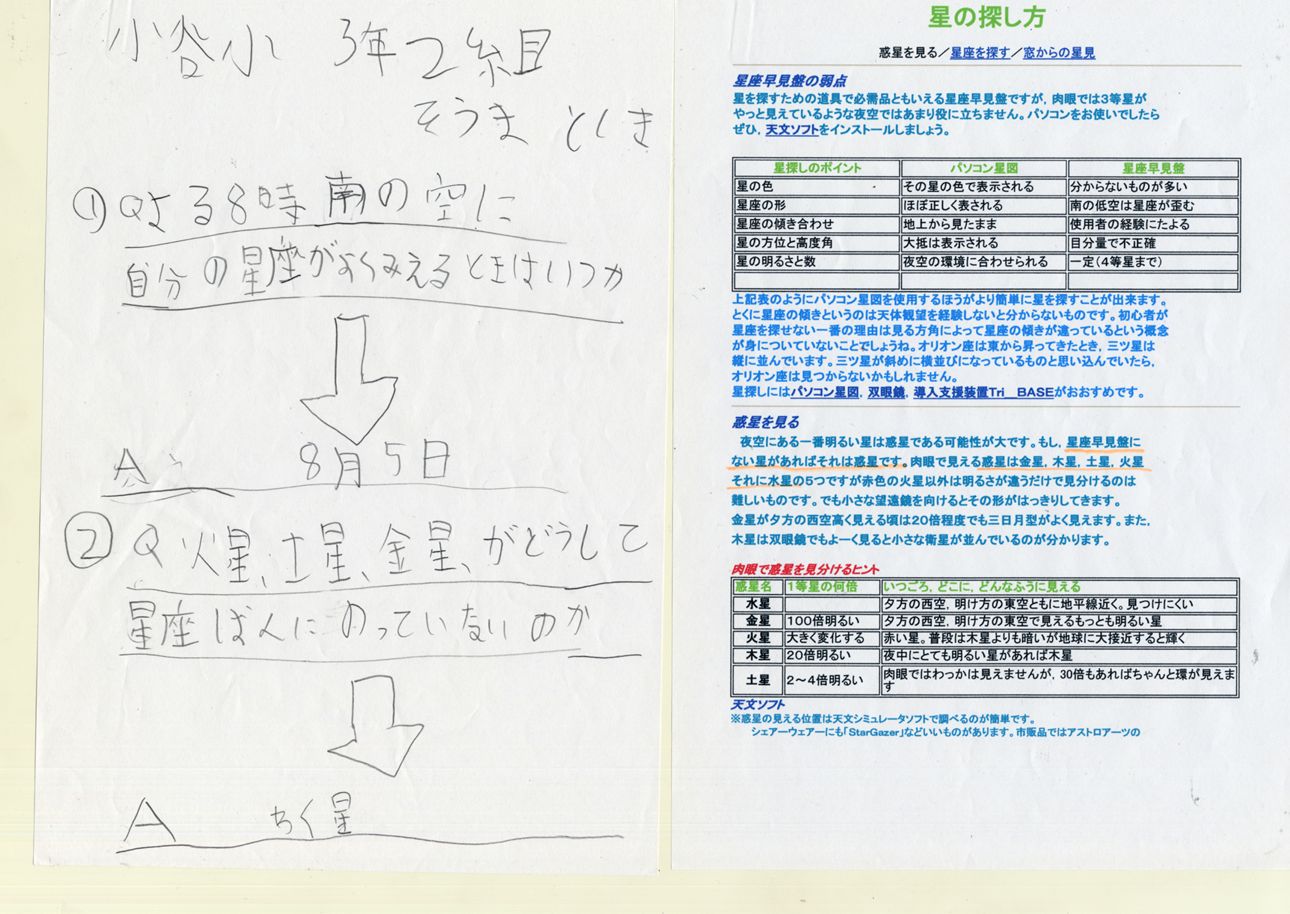 小谷小 3年2組
そうま としき
① Qよる8時南の空に
自分の星座がよくみえるときはいつか
A 8月5日
② Q 火星、土星、金星、がどうして
星座ばんにのっていないのか
A わく星
星の探し方
惑星を見る／星座を探す／窓からの星見
星座早見盤の弱点
星を探すための道具で必需品ともいえる星座早見盤ですが，肉眼では3等星が
やっと見えているような夜空ではあまり役に立ちません。パソコンをお使いでしたら
ぜひ，天文ソフトをインストールしましょう。
星探しのポイント パソコン星図 星座早見盤
星の色 その星の色で表示される 分からないものが多い
星座の形 ほぼ正しく表される 南の低空は星座が歪む
星座の傾き合わせ 地上から見たまま 使用者の経験にたよる
星の方位と高度角 大抵は表示される 目分量で不正確
星の明るさと数 夜空の環境に合わせられる 一定（4等星まで）
上記表のようにパソコン星図を使用するほうがより簡単に星を探すことが出来ます。
とくに星座の傾きというのは天体観望を経験しないと分からないものです。初心者が
星座を探せない一番の理由は見る方角によって星座の傾きが違っているという概念
が身についていないことでしょうね。オリオン座は東から昇ってきたとき，三ツ星は
縦に並んでいます。三ツ星が斜めに横並びになっているものと思い込んでいたら，
オリオン座は見つからないかもしれません。
星探しにはパソコン星図，双眼鏡，導入支援装置Tri＿BASEがおおすすめです。
惑星を見る
夜空にある一番明るい星は惑星である可能性が大です。もし，星座早見盤に
ない星があればそれは惑星です。肉眼で見える惑星は金星，木星，土星，火星
それに水星の5つですが赤色の火星以外は明るさが違うだけで見分けるのは
難しいものです。でも小さな望遠鏡を向けるとその形がはっきりしてきます。
金星が夕方の西空高く見える頃は20倍程度でも三日月型がよく見えます。また，
木星は双眼鏡でもよーく見ると小さな衛星が並んでいるのが分かります。
肉眼で惑星を見分けるヒント
惑星名 1等星の何倍 いつごろ，どこに，どんなふうに見える
水星 夕方の西空，明け方の東空ともに地平線近く。見つけにくい
金星 100倍明るい 夕方の西空，明け方の東空で見えるもっとも明るい星
火星 大きく変化する 赤い星。普段は木星よりも暗いが地球に大接近すると輝く
木星 20倍明るい 夜中にとても明るい星があれば木星
土星 2～4倍明るい 肉眼ではわっかは見えませんが，30倍もあればちゃんと環が見えま
す
天文ソフト
※惑星の見える位置は天文シミュレータソフトで調べるのが簡単です。
シェアーウェアーにも「StarGazer」などいいものがあります。市販品ではアストロアーツの